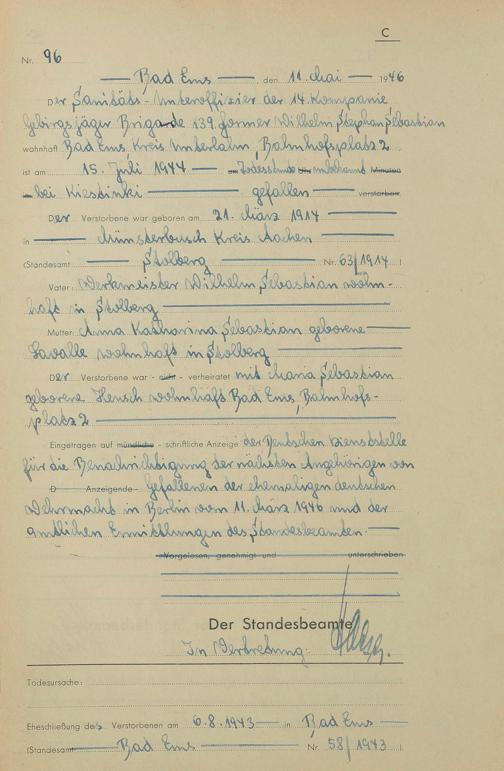 C
Nr. 96
Bad Ems, den 11. Mai 1946
Der Sanitäts-Unteroffizier der 14. Kompanie
Gebirgsjäger Brigade 139, Wilhelm Stephan Sebastian
wohnhaft Bad Ems, Kreis Unterlahn, Bahnhofsplatz 2
ist am 15. Juli 1944 Todesstunde unbekannt Minuten
bei Kiestinki gefallen verstorben.
Der Verstorbene war geboren am 21. März 1914
in Münsterbusch Kreis Aachen
(Standesamt Stolberg Nr. 63/1914)
Vater: Werkmeister Wilhelm Sebastian wohn-
haft in Stolberg
Mutter: Anna Katharina Sebastian geborene
Lavalle wohnhaft in Stolberg
Der Verstorbene war - nicht - verheiratet mit Maria Sebastian
geborene Hensch wohnhaft Bad Ems, Bahnhofs-
platz 2
Eingetragen auf mündliche - schriftliche Anzeige der Deutschen Dienststelle
für die Benachrichtigung der nächsten Angehörigen von
D Anzeigende Gefallenen der ehemaligen deutschen
Wehrmacht in Berlin vom 11. März 1946 und der
amtlichen Ermittlungen des Standesbeamten.
Vorgelesen, genehmigt und unterschrieben
Der Standesbeamte
In Vertretung:
Todesursache:
Eheschließung des Verstorbenen am 6.8.1943 in Bad Ems
(Standesamt Bad Ems Nr. 58/1943)